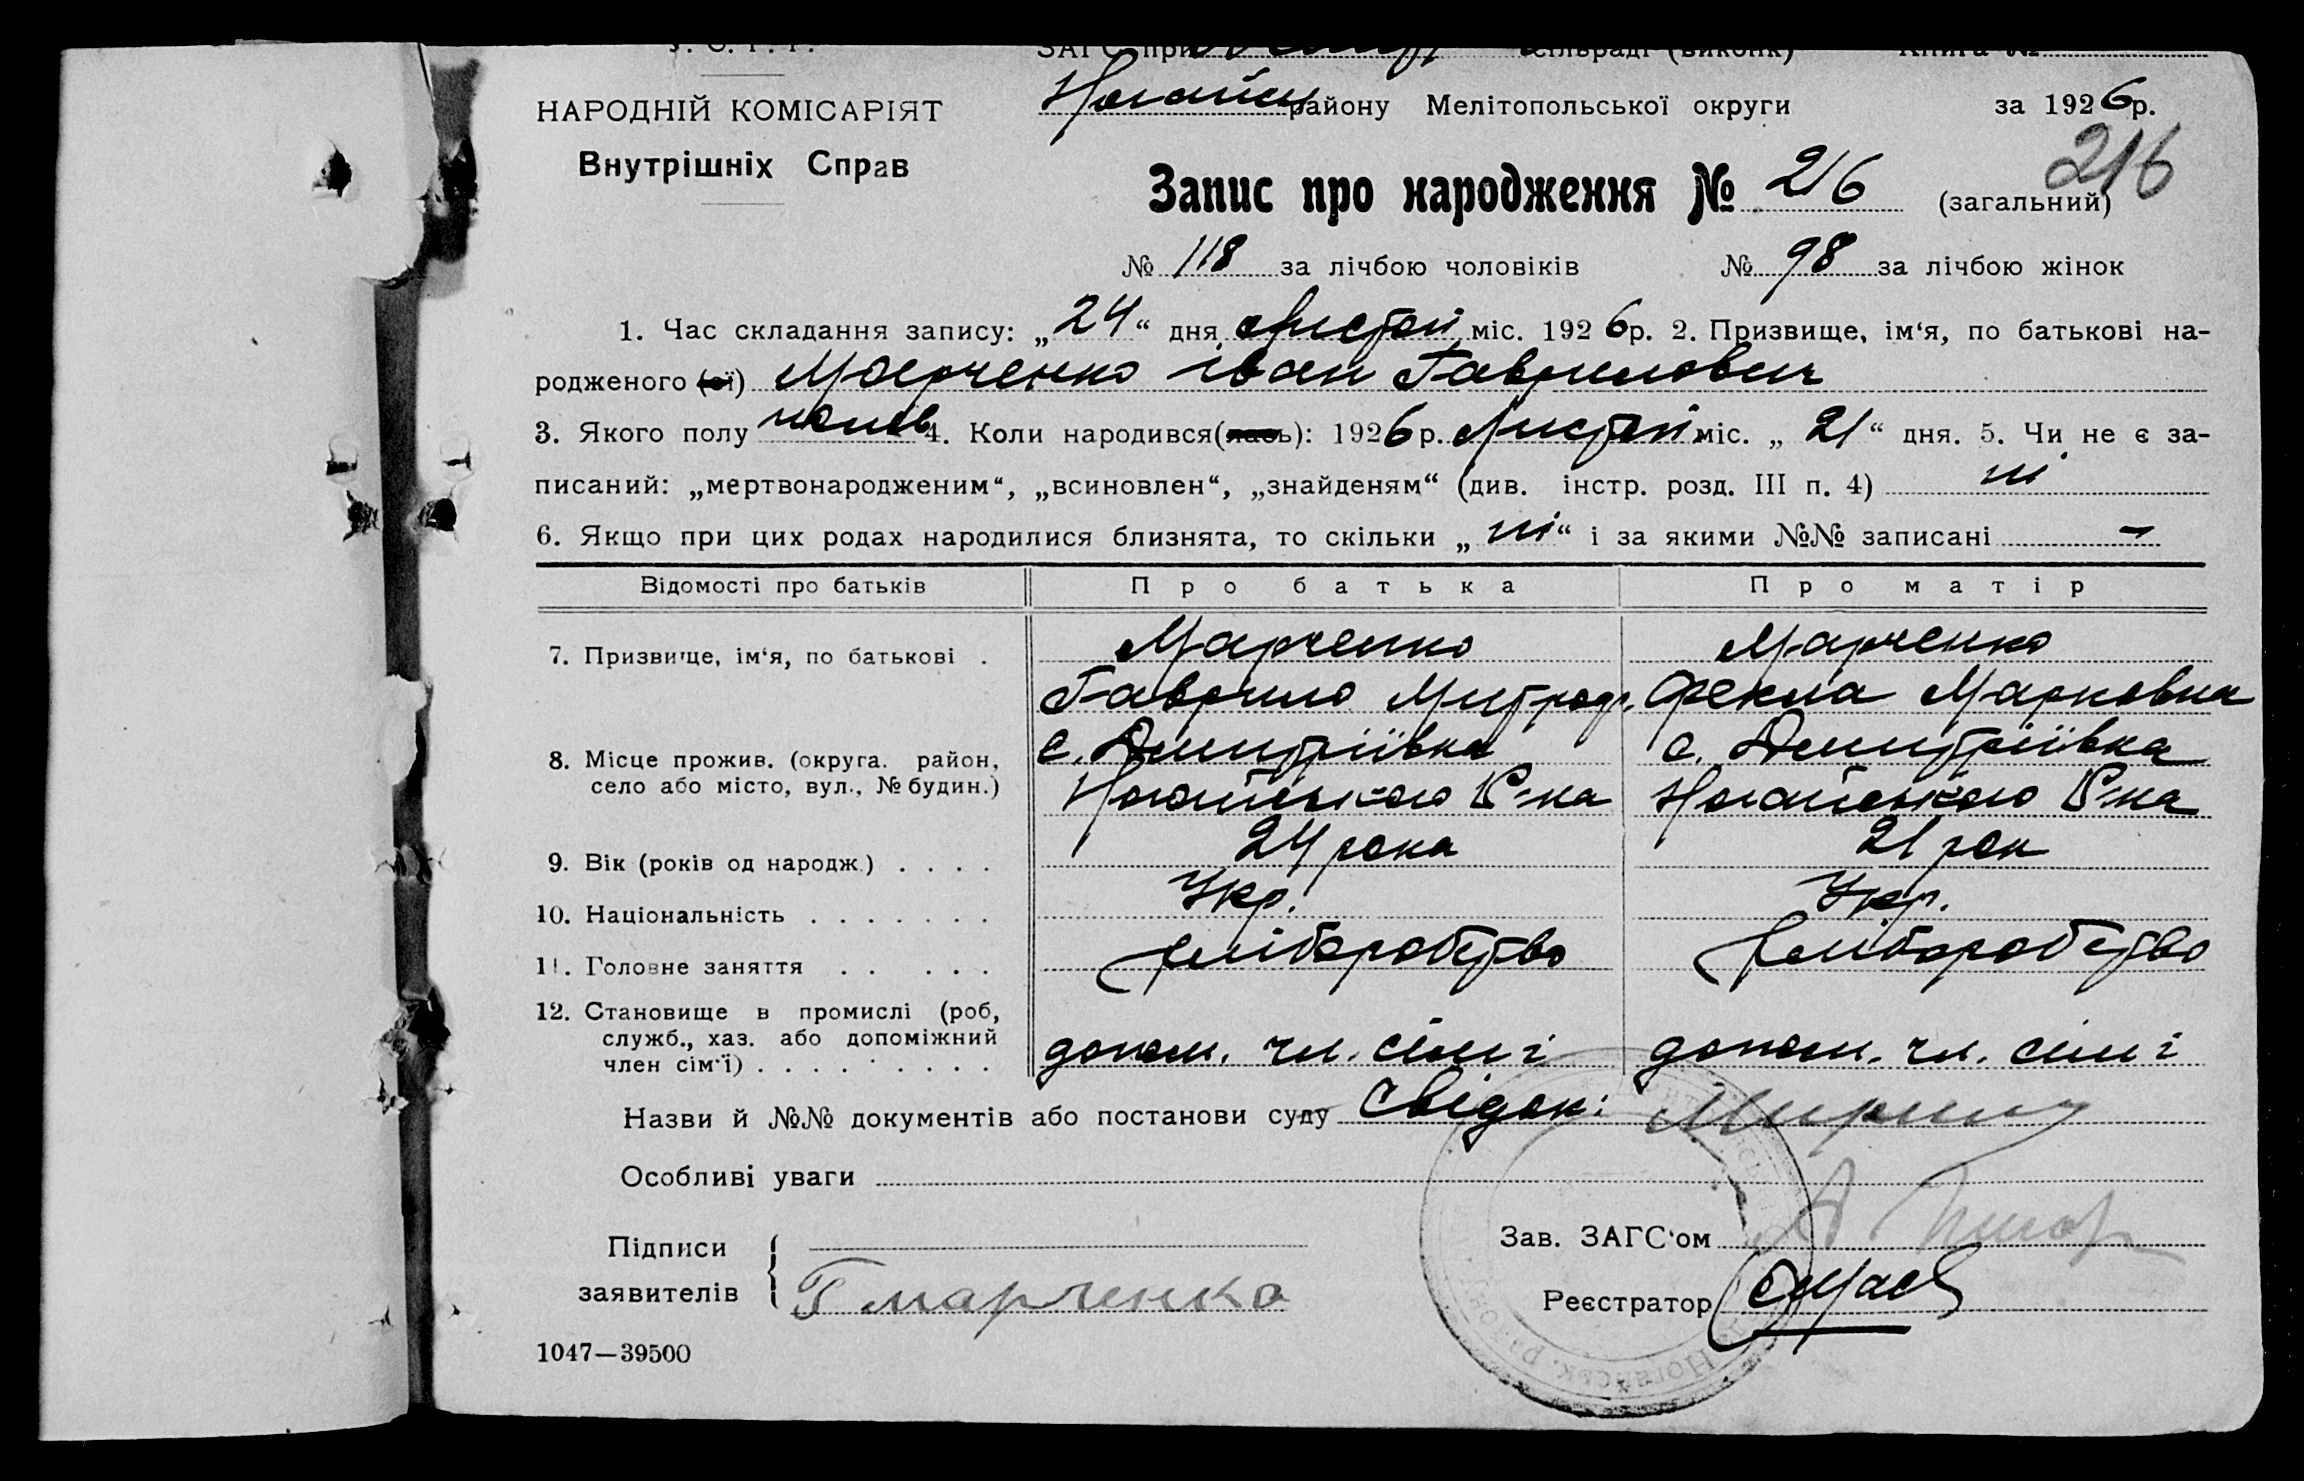 У. С. Р. Р.
ЗАГС при сільраді (виконк) Книга №
НАРОДНІЙ КОМІСАРІЯТ
Внутрішніх Справ
Ногайськ району Мелітопольської округи за 1926 р.
216
Запис про народження № 216 (загальний)
№ 118 за лічбою чоловіків № 98 за лічбою жінок
1. Час складання запису: „24“ дня листоп. міс. 1926 р. 2. Призвище, ім‘я, по батькові на-
родженого (ої) Марченко Іван Гаврилович
3. Якого полу чолов 4. Коли народився(лась): 1926 р. Листоп міс. „21“ дня. 5. Чи не є за-
писаний: „мертвонародженим“, „всиновлен“, „знайденям“ (див. інстр. розд. III п. 4) ні
6. Якщо при цих родах народилися близнята, то скільки „ні“ і за якими №№ записані –
Відомості про батьків Про батька Про матір
7. Призвище, ім‘я, по батькові . Марченко Марченко
Гаврило Митроф. Фекла Марковна
8. Місце прожив. (округа. район, с. Дмитріївка с. Дмитріївка
село або місто, вул., № будин.) Ногайського Р-на Ногайського Р-на
9. Вік (років од народж.) . . . . 24 рока 21 рок
10. Національність . . . . . . . Укр. Укр.
11. Головне заняття . . . . . хліборобство хліборобство
12. Становище в промислі (роб,
служб., хаз. або допоміжний
член сім‘ї) . . . . . . . . . допом. чл. сімі допом. чл. сімі
Назви й №№ документів або постанови суду Свідок:
Особливі уваги
Підписи
заявителів Г Марченко
Зав. ЗАГС‘ом
Реєстратор
1047—39500